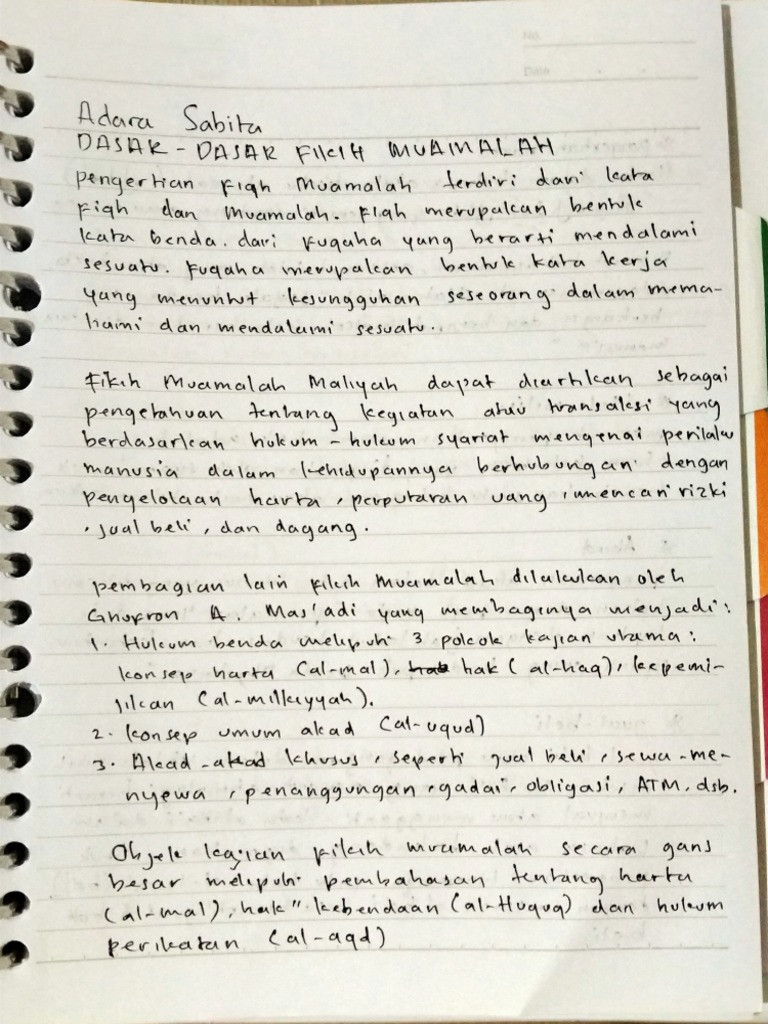 No.
Date
Adara Sabita
DASAR - DASAR FIKIH MUAMALAH
pengertian Fiqh Muamalah terdiri dari kata
Fiqh dan Muamalah. Fiqh merupakan bentuk
kata benda. dari Fuqaha yang berarti mendalami
sesuatu. Fuqaha merupakan bentuk kata kerja
yang menuntut kesungguhan seseorang dalam mema-
hami dan mendalami sesuatu.
Fikih Muamalah Maliyah dapat diartikan sebagai
pengetahuan tentang kegiatan atau transaksi yang
berdasarkan hukum - hukum syariat mengenai perilaku
manusia dalam kehidupannya berhubungan dengan
pengelolaan harta, perputaran uang, mencari rizki
, jual beli, dan dagang.
pembagian lain fikih Muamalah dilakukan oleh
Ghufron A. Mas'adi yang membaginya menjadi:
1. Hukum benda meliputi 3 pokok kajian utama:
konsep harta (al-mal), hak (al-haq), kepemi-
likan (al-milkiyyah).
2. Konsep umum akad (al-uqud)
3. Akad-akad khusus, seperti jual beli, sewa-me-
nyewa, penanggungan, gadai, obligasi, ATM, dsb.
Objek kajian fikih muamalah secara garis
besar meliputi pembahasan tentang harta
(al-mal), hak" kebendaan (al-Huquq) dan hukum
perikatan (al-aqd)